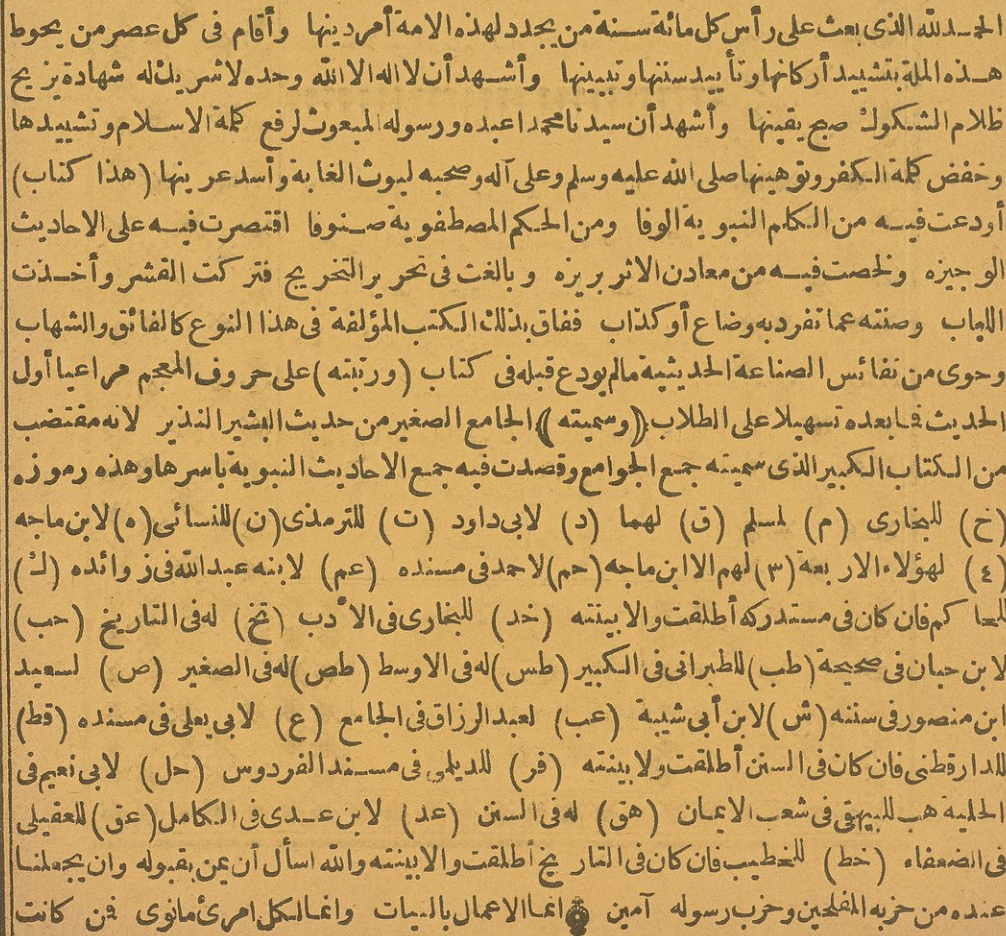 الحمد لله الذى بعث على رأس كل مائة سنة من يجدد لهذه الامة أمر دينها وأقام فى كل عصر من يحوط
هذه الملة بتشييد أركانها وتأييد سننها وتبيينها وأشهد أن لا اله الا الله وحده لا شريك له شهادة يزيح
ظلام الشكوك صبح يقينها وأشهد أن سيدنا محمدا عبده ورسوله المبعوث لرفع كلمة الاسلام وتشييدها
وخفض كلمة الكفر وتوهينها صلى الله عليه وسلم وعلى آله وصحبه ليوث الغابة وأسد عرينها (هذا كتاب)
أودعت فيه من الكلم النبوية الوفا ومن الحكم المصطفوية صنوفا اقتصرت فيه على الاحاديث
الوجيزه ولخصت فيه من معادن الاثر بريزه وبالغت فى تحرير التخريج فتركت القشر وأخذت
اللباب وصنته عما تفرد به وضاع أو كذاب ففاق بذلك الكتب المؤلفة فى هذا النوع كالفائق والشهاب
وحوى من نفائس الصناعة الحديثية مالم يودع قبله فى كتاب (ورتبته) على حروف المعجم مراعيا أول
الحديث فما بعده تسهيلا على الطلاب (وسميته) الجامع الصغير من حديث البشير النذير لانه مقتضب
من الكتاب الكبير الذى سميته جمع الجوامع وقصدت فيه جمع الاحاديث النبوية باسرها وهذه رموزه
(خ) للبخارى (م) لمسلم (ق) لهما (د) لابى داود (ت) للترمذى (ن) للنسائى (ه) لابن ماجه
(٤) لهؤلاء الاربعة (٣) لهم الا ابن ماجه (حم) لاحمد فى مسنده (عم) لابنه عبد الله فى زوائده (ك)
للحاكم فان كان فى مستدركه أطلقت والا بينته (خد) للبخارى فى الأدب (تخ) له فى التاريخ (حب)
لابن حبان فى صحيحة (طب) للطبرانى فى الكبير (طس) له فى الاوسط (طص) له فى الصغير (ص) لسعيد
ابن منصور فى سننه (ش) لابن أبى شيبة (عب) لعبد الرزاق فى الجامع (ع) لابى يعلى فى مسنده (قط)
للدارقطنى فان كان فى السنن أطلقت ولا بينته (فر) للديلمى فى مسند الفردوس (حل) لابى نعيم فى
الحلية هب للبيهقى فى شعب الايمان (هق) له فى السنن (عد) لابن عدى فى الكامل (عق) للعقيلى
فى الضعفاء (خط) للخطيب فان كان فى التاريخ أطلقت والا بينته والله اسأل أن يمن بقبوله وان يجعلنا
عنده من حزبه المفلحين وحزب رسوله آمين انما الاعمال بالنيات وانما لكل امرئ مانوى فن كانت